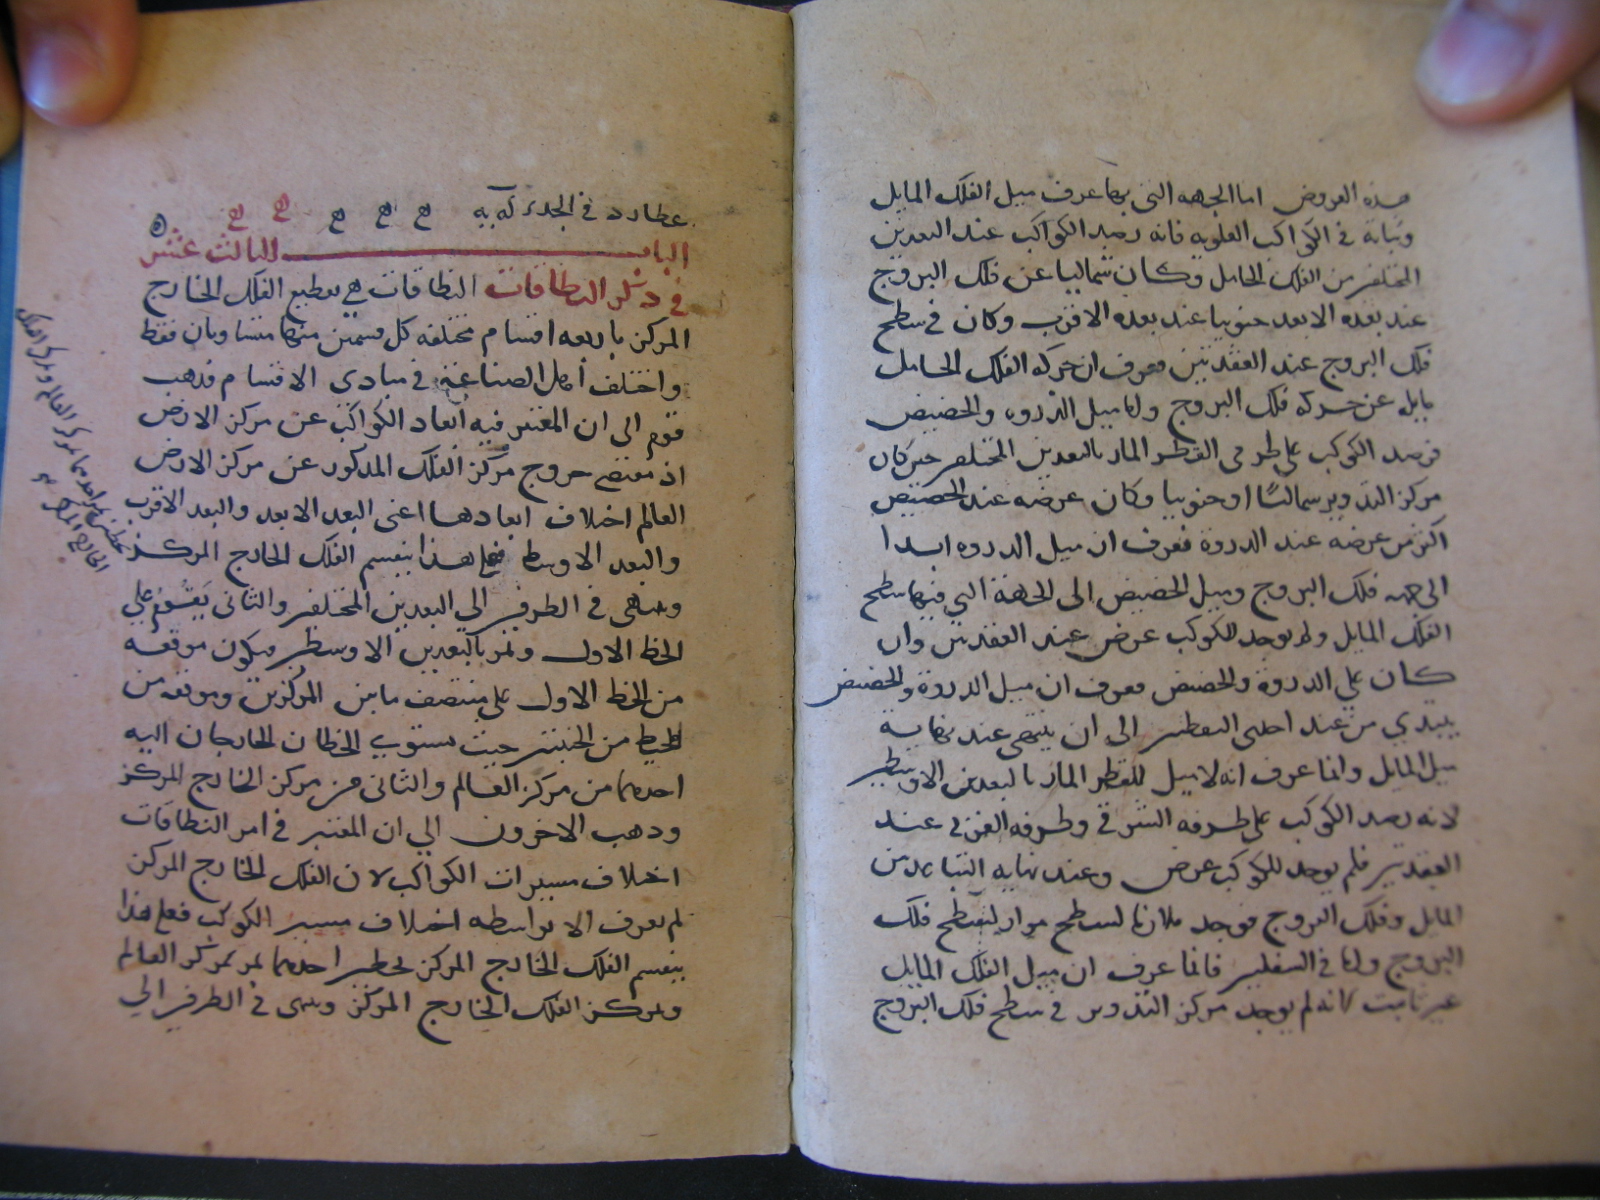 هذه العروض اما الجهه التى بها عرف ميل الفلك المايل
وثباته فى الكواكب العلويه فانه رصد الكواكب عند البعدين
المختلفين من الفلك الحامل وكان شماليا عن فلك البروج
عند بعده الابعد جنوبيا عند بعده الاقرب وكان فى سطح
فلك البروج عند العقدتين فعرف ان حركه الفلك الحامل
مايله عن حركه فلك البروج واما ميل الذروه والحضيض
فرصد الكوكب على طرفى القطر المار بالبعدين المختلفين حين كان
مركز التدوير شماليا او جنوبيا وكان عرضه عند الحضيض
اكثر من عرضه عند الذروة فعرف ان ميل الذروه ابدا
الى جهه فلك البروج وميل الحضيض الى الجهة التي فيها سطح
الفلك المايل ولم يوجد للكوكب عرض عند العقدتين وان
كان علي الذروة والحضيض فعرف ان ميل الذروة والحضيض
يبتدي من عند احدى النقطتين الى ان ينتهى عند نهاية
ميل المايل وانما عرف انه لا ميل للقطر المار بالبعدين الاوسطين
لانه رصد الكوكب على طرفه الشرقي وطرفه الغربى عند
العقدتين فلم يوجد للكوكب عرض وعند نهايه التباعد من
المايل وفلك البروج فوجد ملازما لسطح مواز لسطح فلك
البروج واما فى السفليين فانما عرف ان ميل الفلك المايل
غير ثابت لانه لم يوجد مركز التدوير فى سطح فلك البروج
عطارد في الجدى
الباب الثالث عشر
في ذكر النطاقات النطاقات هي تقطيع الفلك الخارج
المركز باربعه اقسام مختلفه كل قسمين منها متساويان فقط
واختلف اهل الصناعة في مبادى الاقسام فذهب
قوم الى ان المعتبر فيه ابعاد الكواكب عن مركز الارض
اذ مقتضى خروج مركز الفلك المذكور عن مركز الارض
العالم اختلاف ابعادها اعنى البعد الابعد والبعد الاقرب
والبعد الاوسط فعلى هذا ينقسم الفلك الخارج المركز
وينتهى فى الطرفين الي البعدين المختلفين والثانى يقوم على
الخط الاول ويمر بالبعدين الاوسطين فيكون موقعه
من الخط الاول على منتصف ما بين المركزين وموقعه من
المحيط من الجنبتين حيث يستوى الخطان الخارجان اليه
احدهما من مركز العالم والثانى من مركز الخارج المركز
وذهب الاخرون الي ان المعتبر فى امر النطاقات
اختلاف مسيرات الكواكب لان الفلك الخارج المركز
لم يعرف الا بواسطه اختلاف مسير الكوكب فعلى هذا
ينقسم الفلك الخارج المركز بخطين احدهما يمر بمركز العالم
وبمركز الفلك الخارج المركز وينتهى فى الطرفين الي
بخطين احدهما يمر بمركز العالم وبمركز الفلك
الخارج المركز